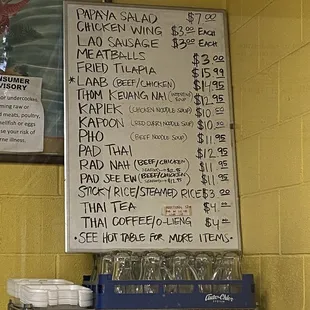 PAPAYA SALAD $7.00
CHICKEN WING $3.00 EACH
LAO SAUSAGE $3.00 EACH
MEATBALLS $3.00
FRIED TILAPIA $15.99
*LAAB (BEEF/CHICKEN) $14.95
THOM KEUANG NAI $12.95
KAPIEK (CHICKEN NOODLE SOUP) $10.00
KAPOON (RED CURRY NOODLE SOUP) $10.00
PHO (BEEF NOODLE SOUP) $11.95
PAD THAI $12.95
RAD NAH (BEEF/CHICKEN) $11.95
PAD SEE EW (BEEF/CHICKEN) $11.95
STICKY RICE/STEAMED RICE $3.00
THAI TEA $4.00
THAI COFFEE/O-LIENG $4.00
*SEE HOT TABLE FOR MORE ITEMS*
NSUMER ADVISORY
or undercooked
d meats, poultry,
ellfish or eggs
se your risk of
rne illness.
Auto-Chlor